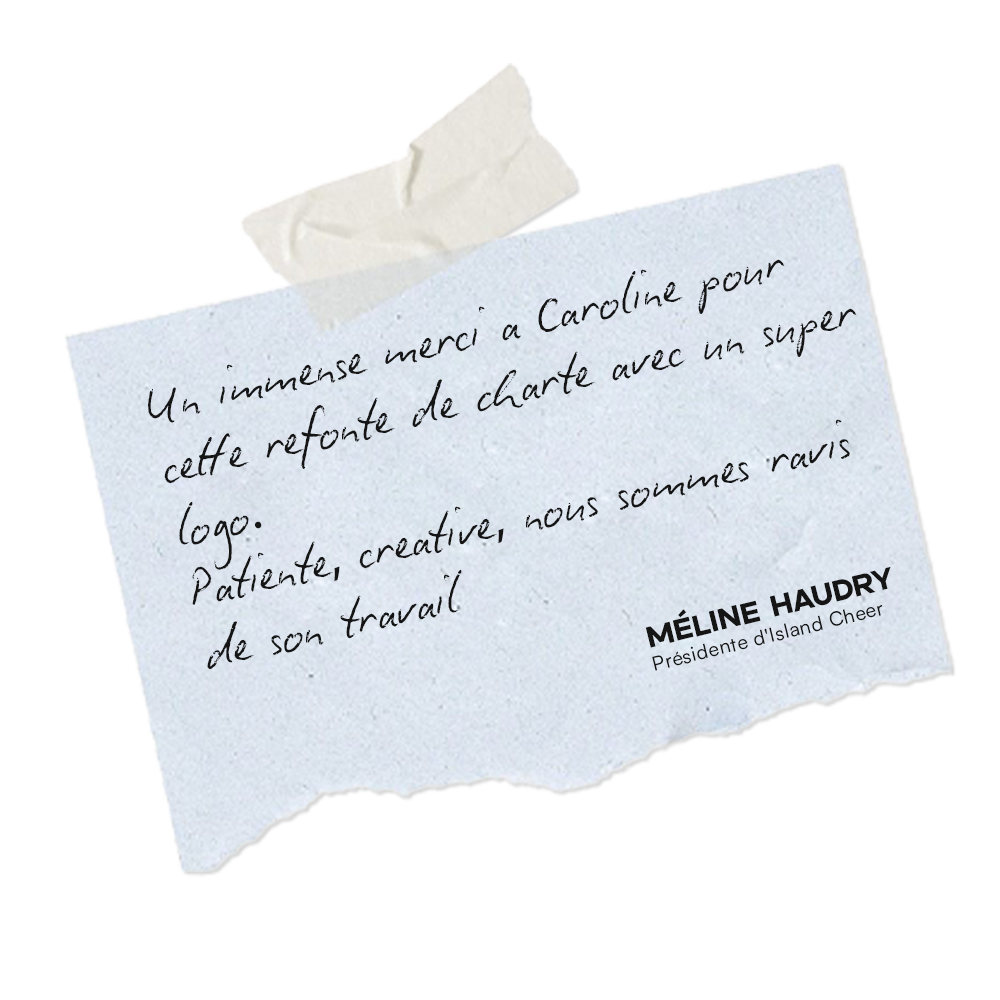 Un immense merci a Caroline pour
cette refonte de charte avec un super
logo.
Patiente, creative, nous sommes ravis
de son travail
MÉLINE HAUDRY
Présidente d'Island Cheer